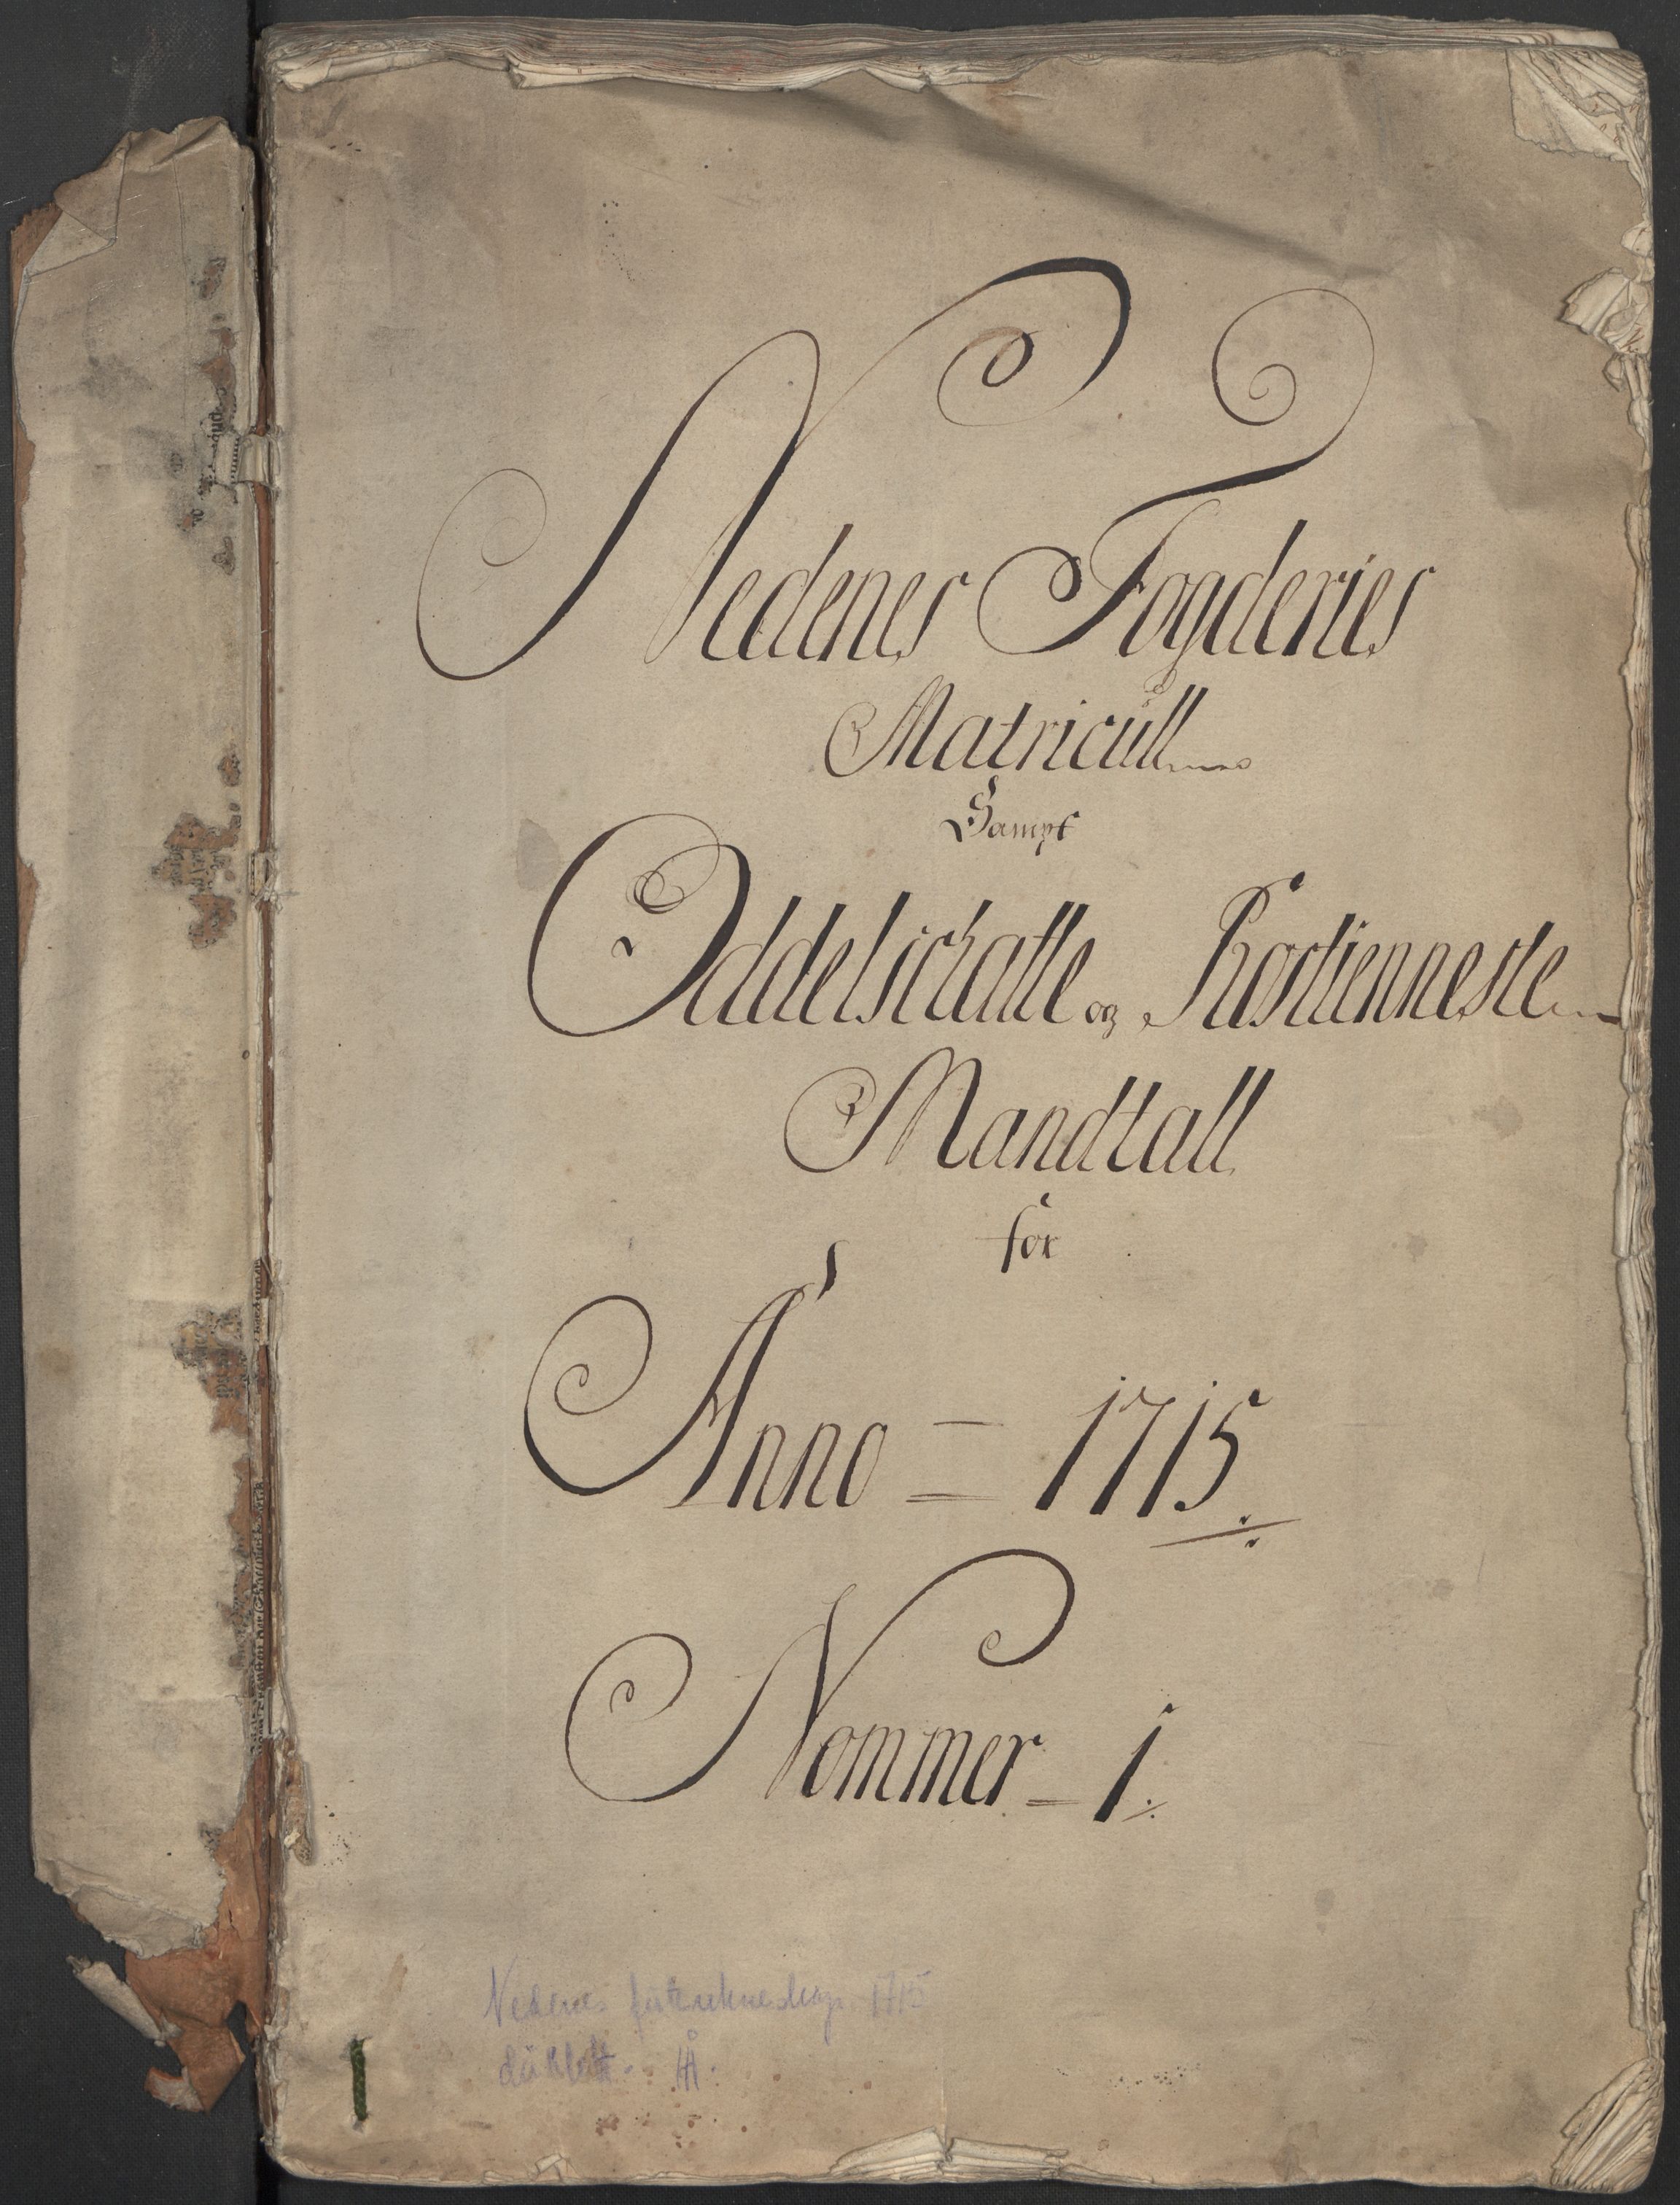 Nedenes Fogderies
Matricull
Sampt
Oddelschatte og Rostienneste
Mandtall
for
Anno = 1715
Nommer = 1
Nedenes 1715